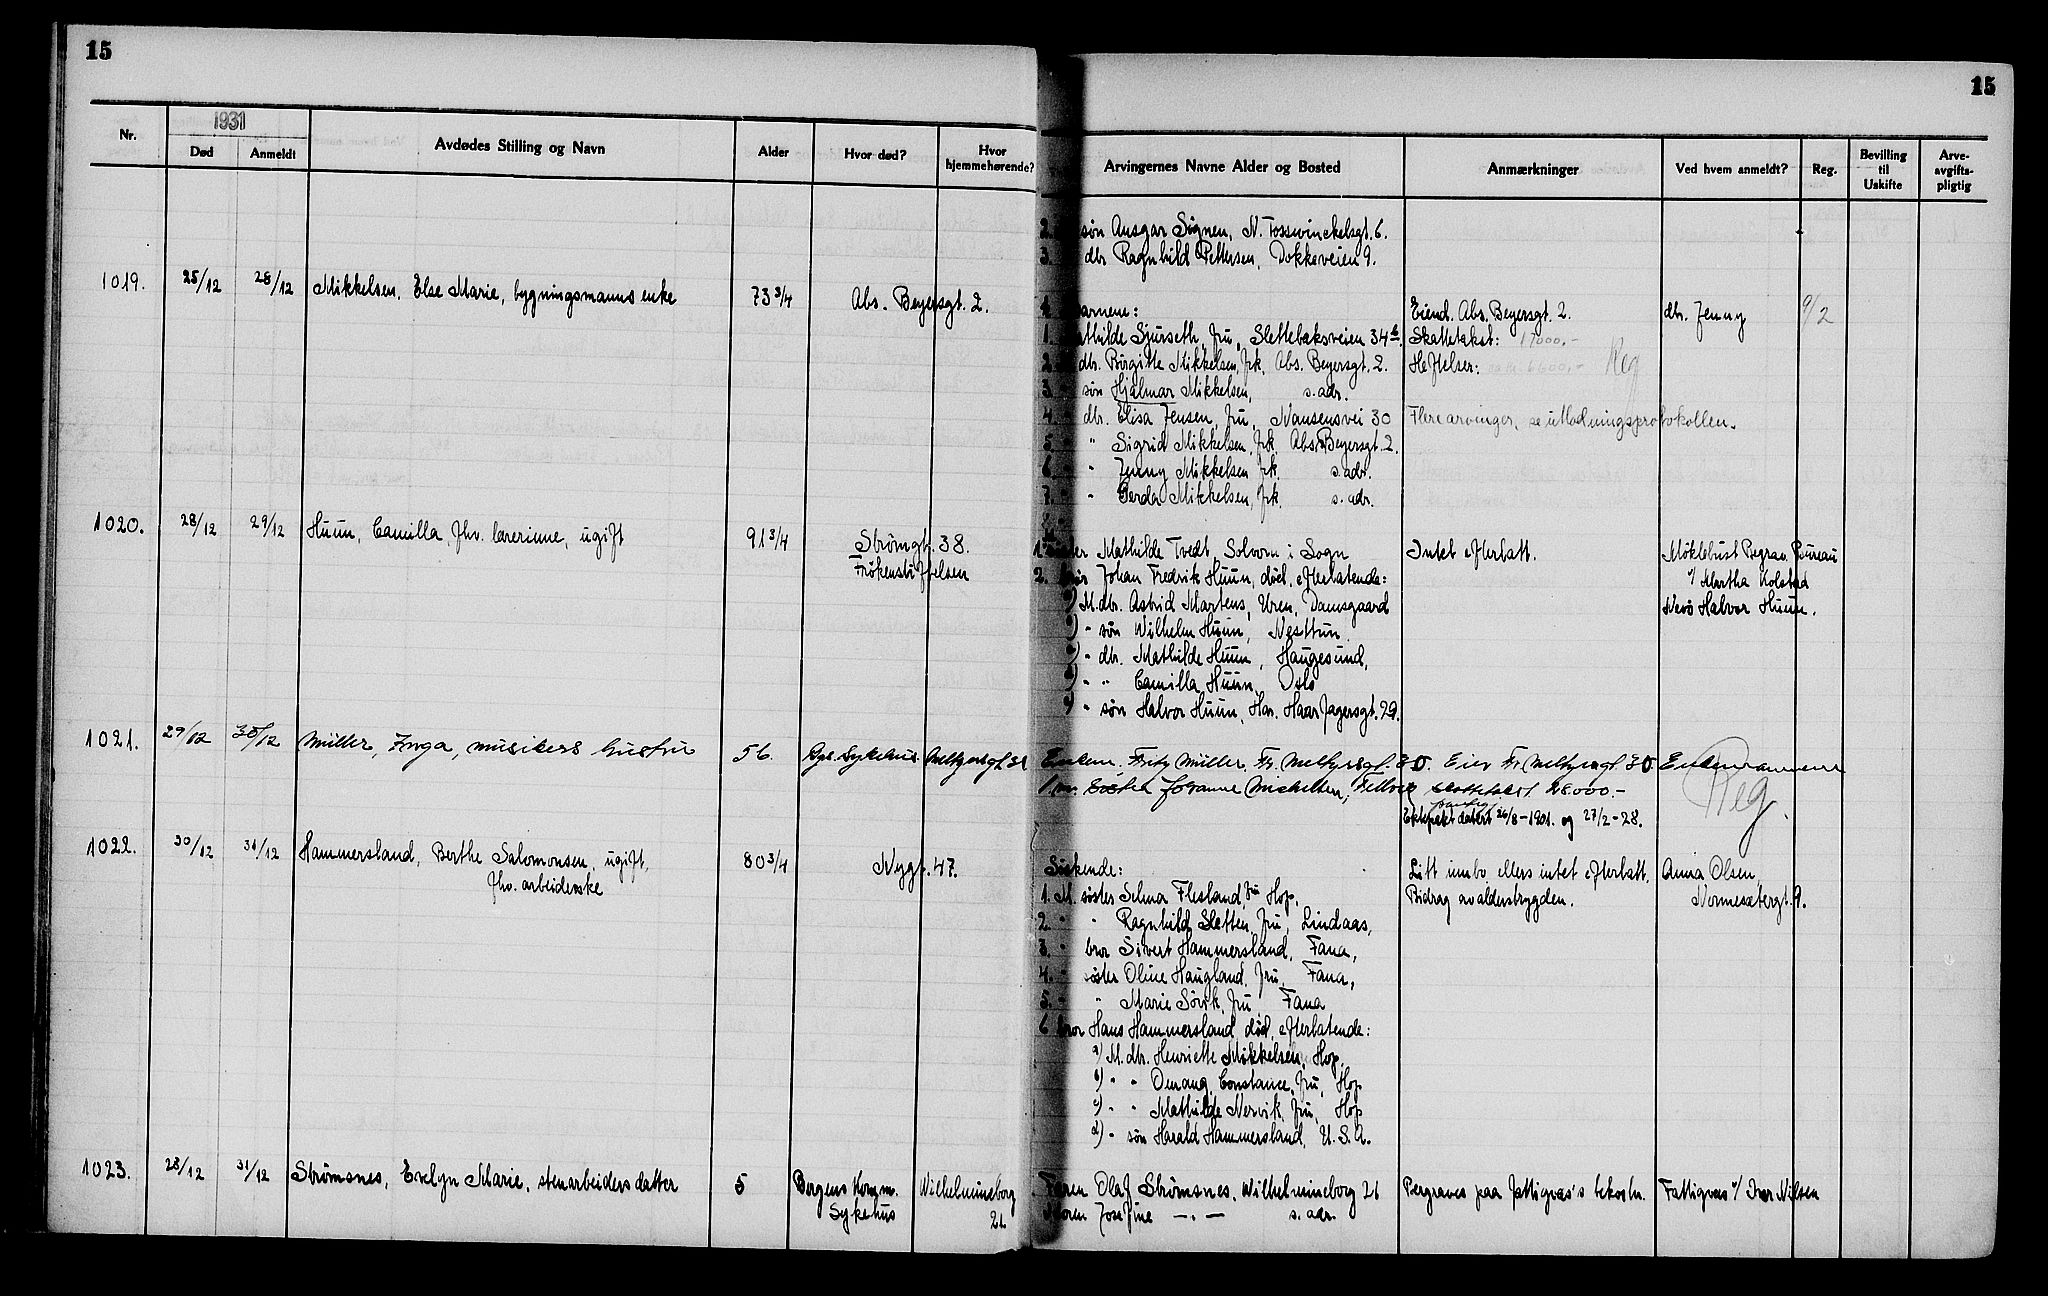 15
15
Nr.
1931
Død
Anmeldt
Avdødes Stilling og Navn
Alder
Hvor død?
Hvor hjemmehørende?
Arvingernes Navne Alder og Bosted
Anmærkninger
Ved hvem anmeldt?
Reg.
Bevilling til Uskifte
Arve-avgifts-pligtig
2. søn Ansgar Signen, N. Fosswinckelsgt. 6.
3. dtr Ragnhild Pettersen, Dokksveien 9.
1019. 25/12 28/12 Mikkelsen, Else Marie, bygningsmanns enke 73 3/4 Abs. Beyersgt. 2.
Barnene: Eiend. Abs. Beyersgt. 2. dtr. Jenny 9/2
1. Mathilde Sjurseth, fru, Slettebaksveien 34 b. Skattetakst: 17000.-
2. dtr. Birgitte Mikkelsen, frk. Abs. Beyersgt. 2. Heftelser: 6600,- Reg
3. søn Hjalmar Mikkelsen, s. adr.
4. dtr. Elisa Jensen, fru, Nansensvei 30 Flere arvinger, se utlodningsprotokollen.
5. " " Sigrid Mikkelsen, frk. Abs. Beyersgt. 2.
6. " " Jenny Mikkelsen frk. s. adr.
7. " " Gerda Mikkelsen, frk. s. adr.
1020. 28/12 29/12 Huun, Camilla, fhv. lærerinne, ugift 91 3/4 Strømgt. 38.
Frøkenstiftelsen
1. søster Mathilde Tvedt, Solvorn i Sogn Intet efterlatt. Møklebust Begrav. Bureau
2. bror Johan Fredrik Huun, død, efterlatende: v/ Martha Kolstad
a) M. dtr. Astrid Martens, Uren, Damsgaard Nevø Halvor Huun.
b) " søn Wilhelm Huun, Nesttun.
c) " dtr. Mathilde Huun, Haugesund,
d) " " Camilla Huun, Oslo
e) " søn Halvor Huun, Har. Haarfagersgt. 29.
1021. 29/12 30/12 Müller, Inga, musikers hustru 56. Gys. Sykehus Meltzersgt. 30
Enkem. Fritz Müller, Fr. Meltzersgt. 30. Eier Fr. Meltzersgt. 30 Enkemannen
1 m. søster Johanne Michelsen, skattetakst 28.000.- Reg.
Ektepakt datert 26/8-1901. og 27/2-28.
1022. 30/12 31/12 Hammersland, Berthe Salomonsen, ugift, 80 3/4 Nygt. 47.
fhv. arbeiderske
Søskende: Litt innbo, ellers intet efterlatt. Anna Olsen,
1. M. søster Selma Flesland, fru Hop, Bidrag av alderstrygden. Normesætergt. 9.
2. " " Ragnhild Sletten, fru, Lindaas,
3. " bror Sivert Hammersland, Fana,
4. " søster Oline Haugland, fru, Fana,
5. " " Marie Sørvik, fru, Fana
6. bror Hans Hammersland, død, efterlatende:
a) M. dtr. Henriette Mikkelsen, Hop,
b) " " Omang, Constance, fru, Hop
c) " " Mathilde Nervik, fru, Hop
d) " søn Harald Hammersland, U.S.A.
1023. 28/12 31/12 Strømsnes, Evelyn Marie, stenarbeiders datter 5 Bergens Komm. Sykehus Wilhelmineborg 21
Faren Olaf Strømsnes, Wilhelmineborg 21 Begraves paa fattigvæs's bekostn. Fattigvæs v/ Iver Nilsen
Moren Josefine —"— s. adr.